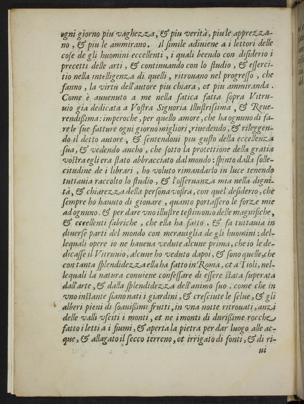 ogni giorno piu vaghezza, & piu verità, piu le apprezza-
no, & piu le ammirano. Il simile adiuiene a i lettori delle
cose de gli huomini eccellenti, i quali beendo con disiderio i
precetti delle arti, & continuando con lo studio, & esserci-
tio nella intelligenza di quelli, ritrouano nel progresso, che
fanno, la virtù dell'autore piu chiara, et piu ammiranda.
Come è auuenuto a me nella fatica fatta sopra Vitru-
uio gia dedicata a Vostra Signoria Illustrissima, & Reue-
rendissima: imperoche, per quello amore, che ha ognuno di fa-
re le sue fatture ogni giorno migliori, riuedendo, & rileggen-
do il detto autore, & sentendoui piu gusto della eccellenza
sua, & vedendo anche, che sotto la protettione della gratia
vostra egli era stato abbracciato dal mondo: spinto dalla solle-
citudine de i librari, ho voluto rimandarlo in luce tenendo
tuttauia raccolto lo studio, & l'osseruanza mia nella digni-
tà, & chiarezza della persona vostra, con quel desiderio, che
sempre ho hauuto di giouare, quanto portassero le forze mie
ad ognuno. & per dare vno illustre testimonio delle magnifiche,
& eccellenti fabriche, che ella ha fatto, & fa tuttauia in
diuerse parti del mondo con merauiglia de gli huomini: del-
lequali opere io ne haueua vedute alcune prima, che io le de-
dicasse il Vitruuio, alcune ho veduto dapoi, & sono quelle, che
con tanta splendidezza ella ha fatto in Roma, et a Tioli, nel-
lequali la natura conuiene confessare di essere stata superata
dall'arte, & dalla splendidezza dell'animo suo. come che in
vno instante sian nati i giardini, & cresciute le selue, & gli
alberi pieni di soauissimi frutti, in vna notte ritrouati, anzi
delle valli vsciti i monti, et ne i monti di durissime rocche
fatto i letti a i fiumi, & aperta la pietra per dar luogo alle ac-
que, & allagato il secco terreno, et irrigato di fonti, & di ri-
ui